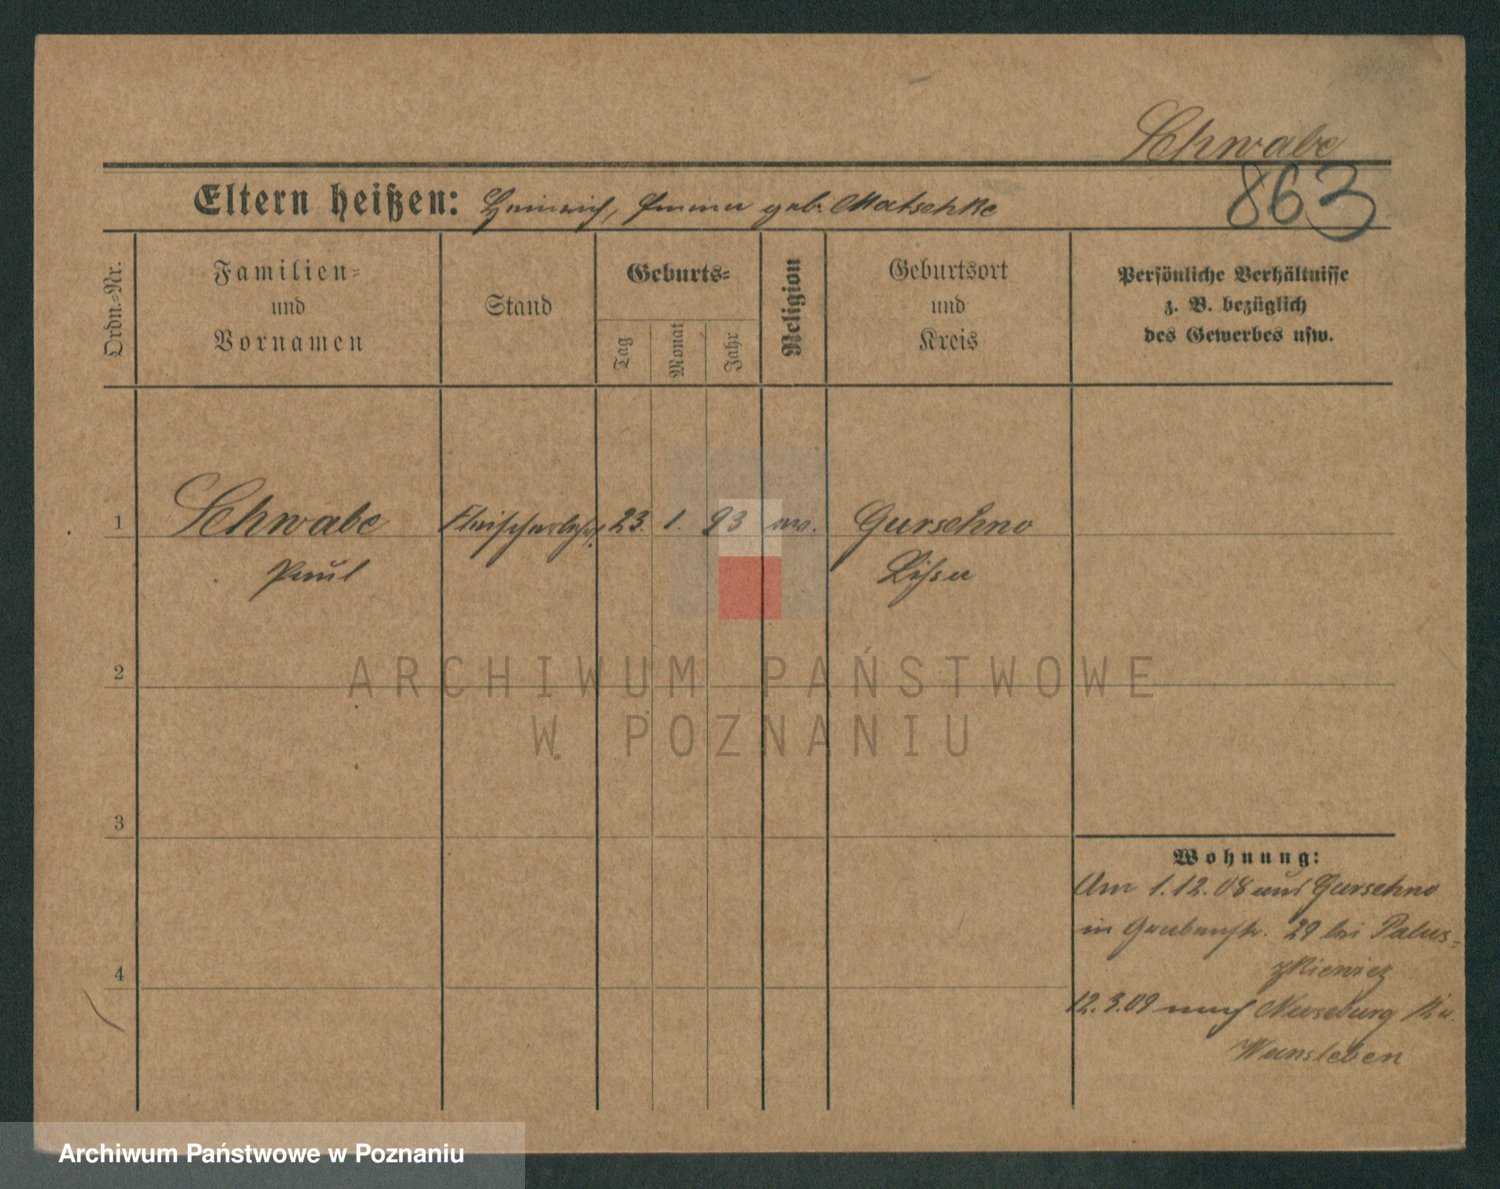 Schwabe
863
Eltern heißen: Heinrich, Emma geb. Matschke
Ordn.-Nr.
Familien-
und
Vornamen
Stand
Geburts-
Tag
Monat
Jahr
Religion
Geburtsort
und
Kreis
Persönliche Verhältnisse
z. B. bezüglich
des Gewerbes usw.
1
Schwabe
Paul
Fleischerlehrl.
23. 1. 93
ev.
Gurschno
Lissa
2
3
4
ARCHIWUM PAŃSTWOWE
W POZNANIU
Wohnung:
Am 1.12.08 aus Gurschno
in Grabenstr. 29 bei Palus-
zkiewicz
12.3.09 nach
Wansleben
Archiwum Państwowe w Poznaniu